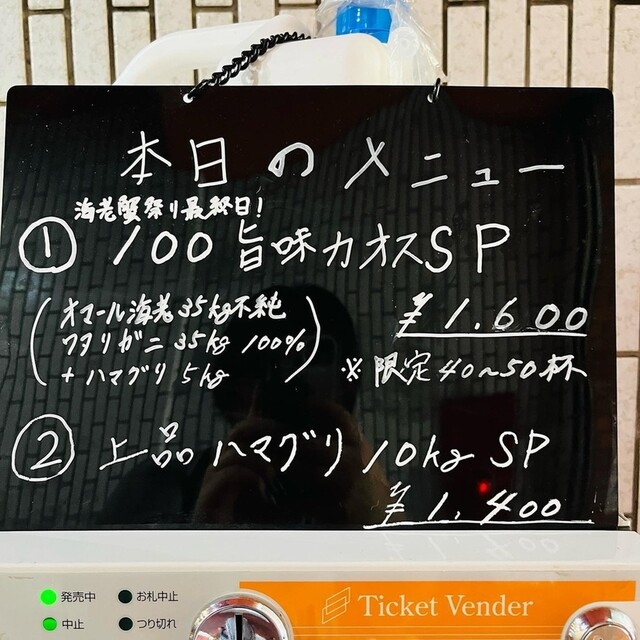 本日のメニュー
海老蟹祭り最終日!
① 100旨味カオスSP
(オマール海老35kg不純
ワタリガニ35kg 100%
+ハマグリ5kg)
¥1.600
※限定40~50杯
② 上品ハマグリ10kg SP
¥1.400
発売中 お札中止
中止 つり切れ
Ticket Vender